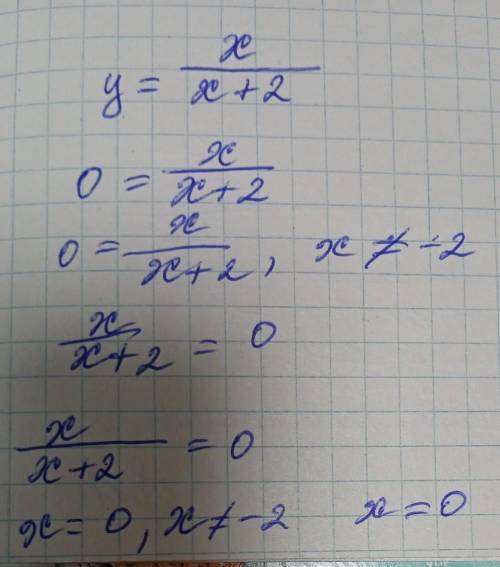 y = x/(x+2)
0 = x/(x+2)
0 = x/(x+2), x ≠ -2
x/(x+2) = 0
x/(x+2) = 0
x = 0, x ≠ -2 x = 0